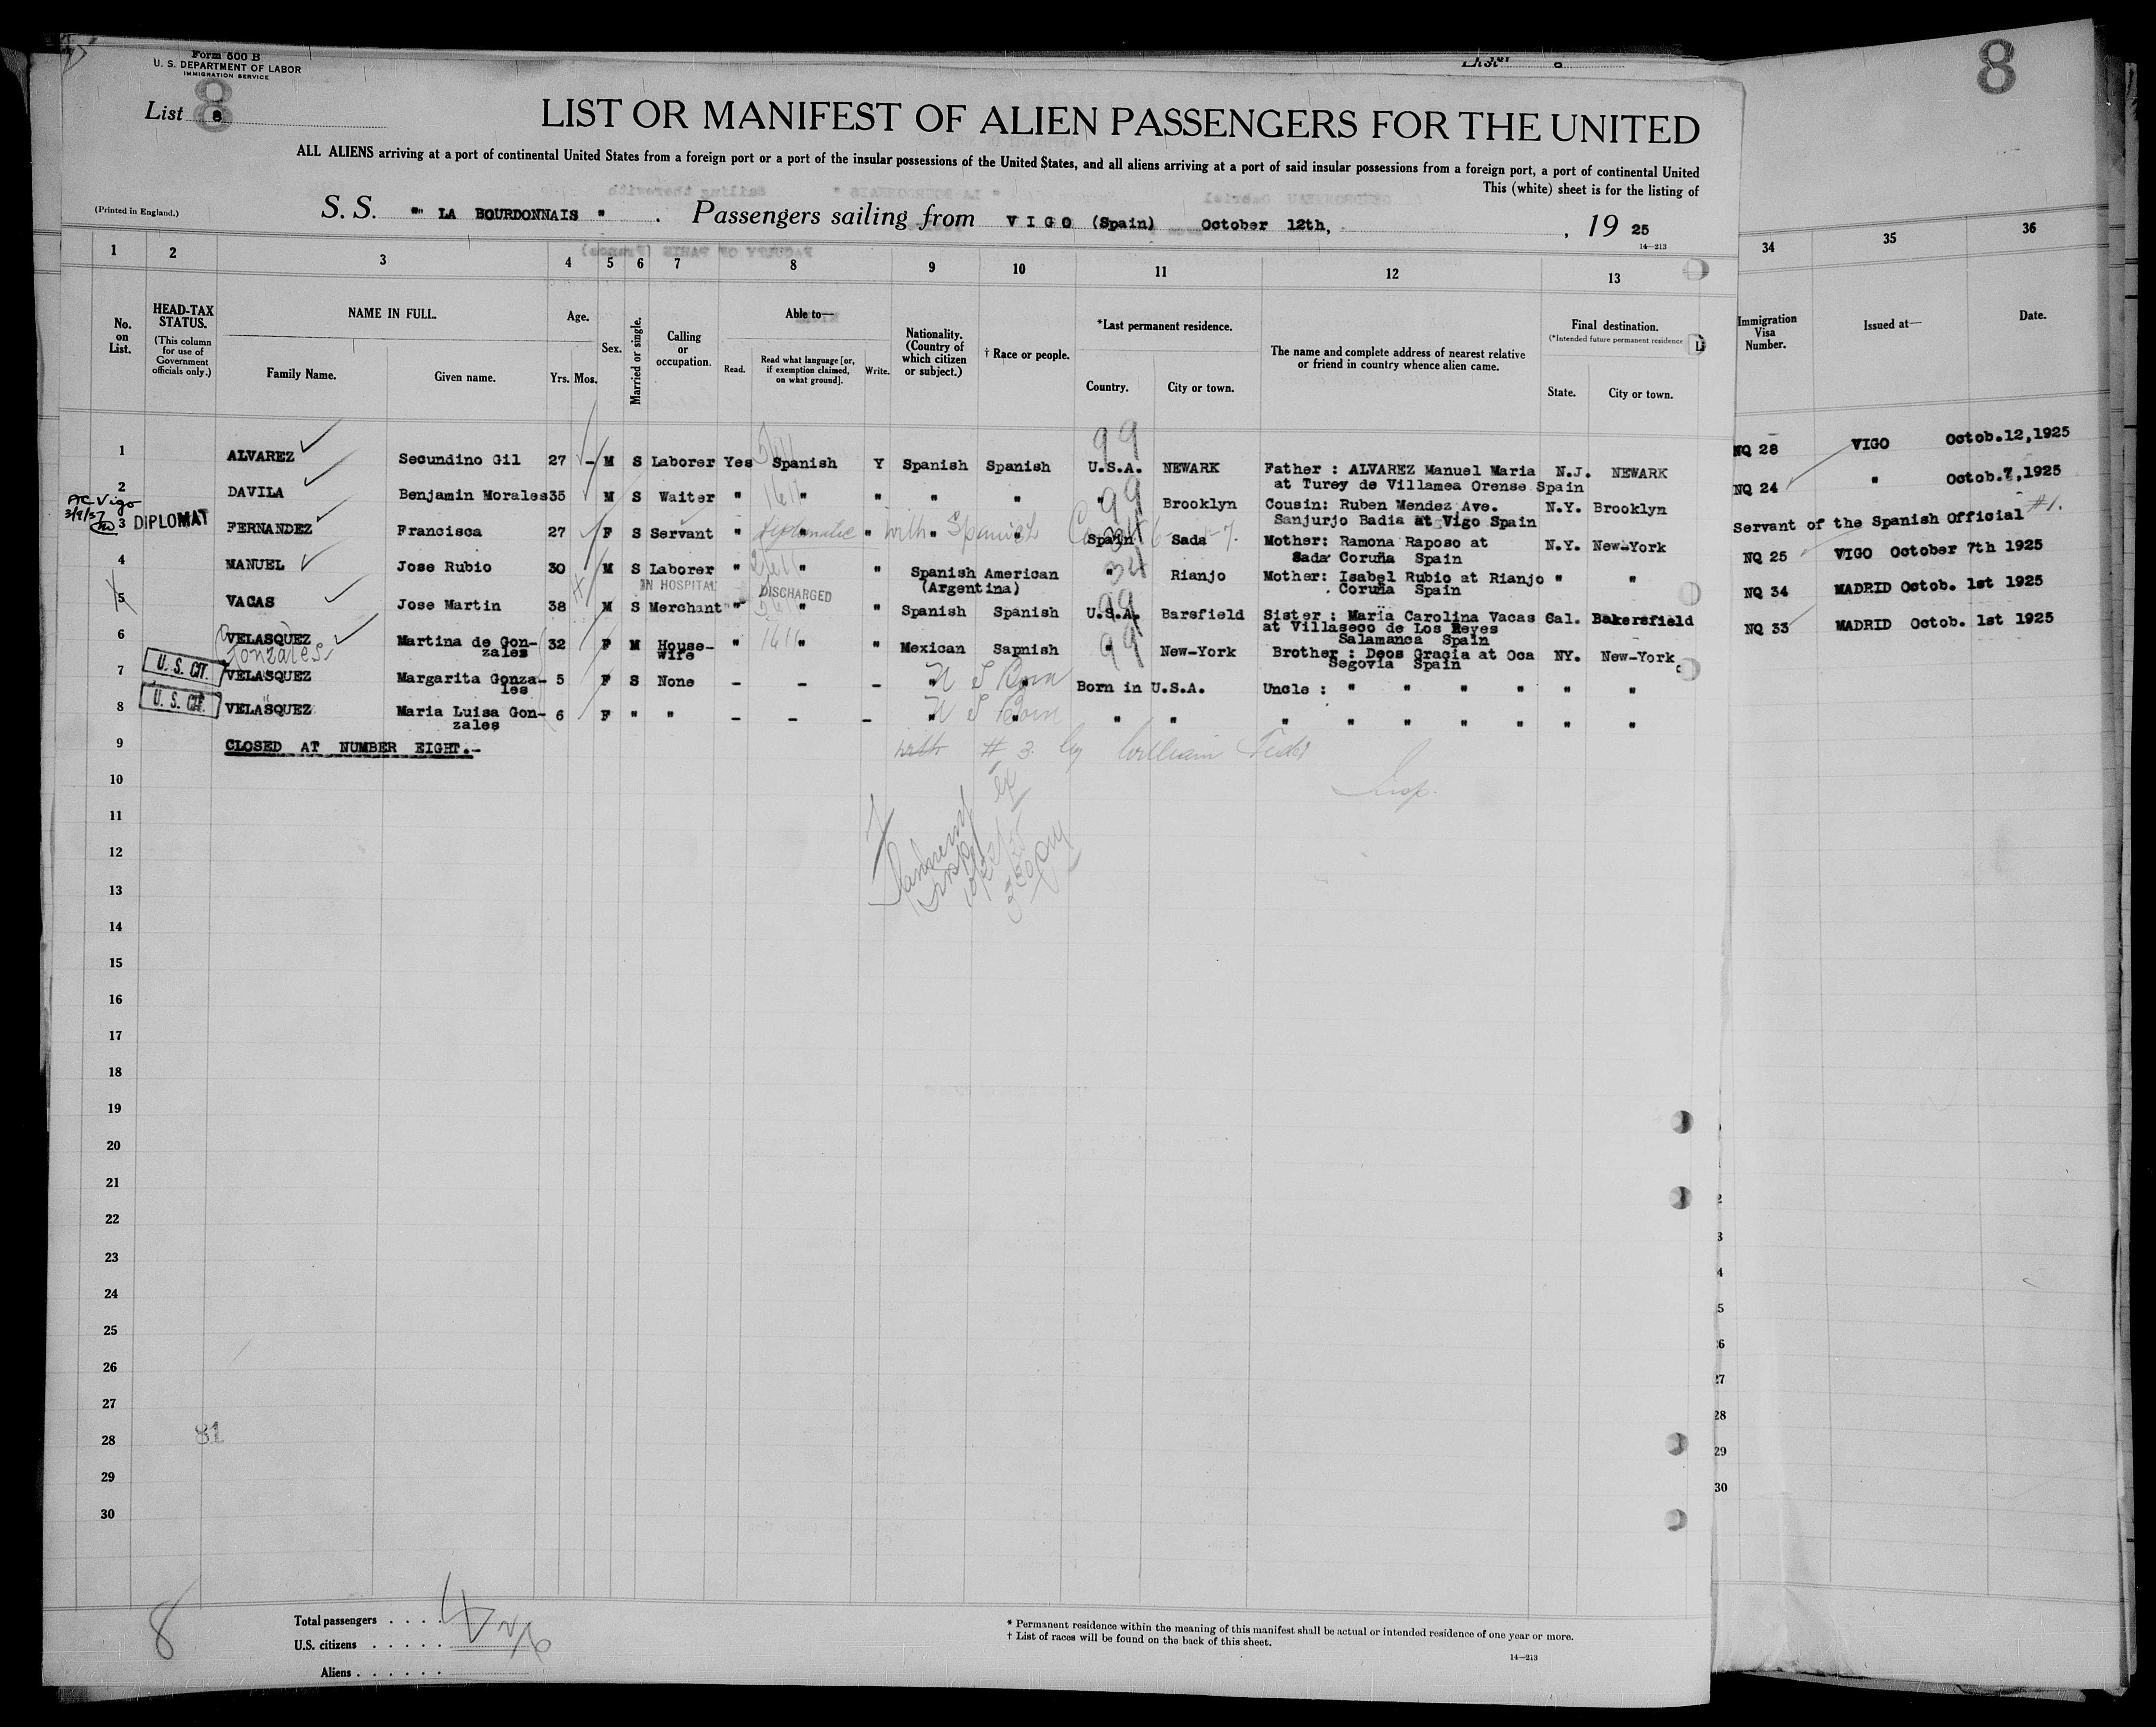 Form 500 B
U. S. DEPARTMENT OF LABOR
IMMIGRATION SERVICE
8
List 8
LIST OR MANIFEST OF ALIEN PASSENGERS FOR THE UNITED
ALL ALIENS arriving at a port of continental United States from a foreign port or a port of the insular possessions of the United States, and all aliens arriving at a port of said insular possessions from a foreign port, a port of continental United
This (white) sheet is for the listing of
(Printed in England.)
S. S. " LA BOURDONNAIS " . Passengers sailing from VIGO (Spain) October 12th, , 19 25
14—213
1 2 3 4 5 6 7 8 9 10 11 12 13 34 35 36
No. on List.
HEAD-TAX STATUS.
(This column for use of Government officials only.)
NAME IN FULL.
Family Name. Given name.
Age.
Yrs. Mos.
Sex.
Married or single.
Calling or occupation.
Able to—
Read. Read what language [or, if exemption claimed, on what ground]. Write.
Nationality. (Country of which citizen or subject.)
† Race or people.
*Last permanent residence.
Country. City or town.
The name and complete address of nearest relative or friend in country whence alien came.
Final destination.
(*Intended future permanent residence
State. City or town.
Immigration Visa Number.
Issued at—
Date.
1 ALVAREZ Secundino Gil 27 - M S Laborer Yes Spanish Y Spanish Spanish U.S.A. NEWARK Father : ALVAREZ Manuel Maria N.J. NEWARK NQ 28 VIGO Octob.12,1925
99
at Turey de Villamea Orense Spain
2 DAVILA Benjamin Morales 35 M S Waiter " " " " " " Brooklyn Cousin: Ruben Mendez Ave. N.Y. Brooklyn NQ 24 " Octob.7,1925
99
Sanjurjo Badia at Vigo Spain
AC Vigo
3/9/37
3 DIPLOMAT FERNANDEZ Francisca 27 F S Servant " " " " " Spain Sada Mother: Ramona Raposo at N.Y. New-York Servant of the Spanish Official #1.
diplomatic with Spanish
Sada Coruña Spain
4 MANUEL Jose Rubio 30 M S Laborer " " " Spanish American " Rianjo Mother: Isabel Rubio at Rianjo " " NQ 25 VIGO October 7th 1925
(Argentina) Coruña Spain
IN HOSPITAL DISCHARGED
5 VACAS Jose Martin 38 M S Merchant " " Spanish Spanish U.S.A. Barsfield Sister : Maria Carolina Vacas Cal. Bakersfield NQ 34 MADRID Octob. 1st 1925
99
at Villaseco de Los Reyes
Salamanca Spain
6 VELASQUEZ Martina de Gonzales 32 F M House-wife " " " Mexican Sapnish " New-York Brother : Deos Gracia at Oca NY. New-York NQ 33 MADRID Octob. 1st 1925
Gonzales
99
Segovia Spain
7 U. S. CIT. VELASQUEZ Margarita Gonza-les 5 F S None - - - " " Born in U.S.A. Uncle : " " " " " "
U S Born
8 U. S. CIT. VELASQUEZ Maria Luisa Gon-zales 6 F " " - - - " " " " " " " " " " "
U S Born
9 CLOSED AT NUMBER EIGHT.-
with # 3 by William
Insp.
10
11
12
13
14
15
16
17
18
19
20
21
22
23
24
25
26
27
28
29
30
81
8
Total passengers . . . .
U.S. citizens . . . . .
Aliens . . . . . .
* Permanent residence within the meaning of this manifest shall be actual or intended residence of one year or more.
† List of races will be found on the back of this sheet.
14—213